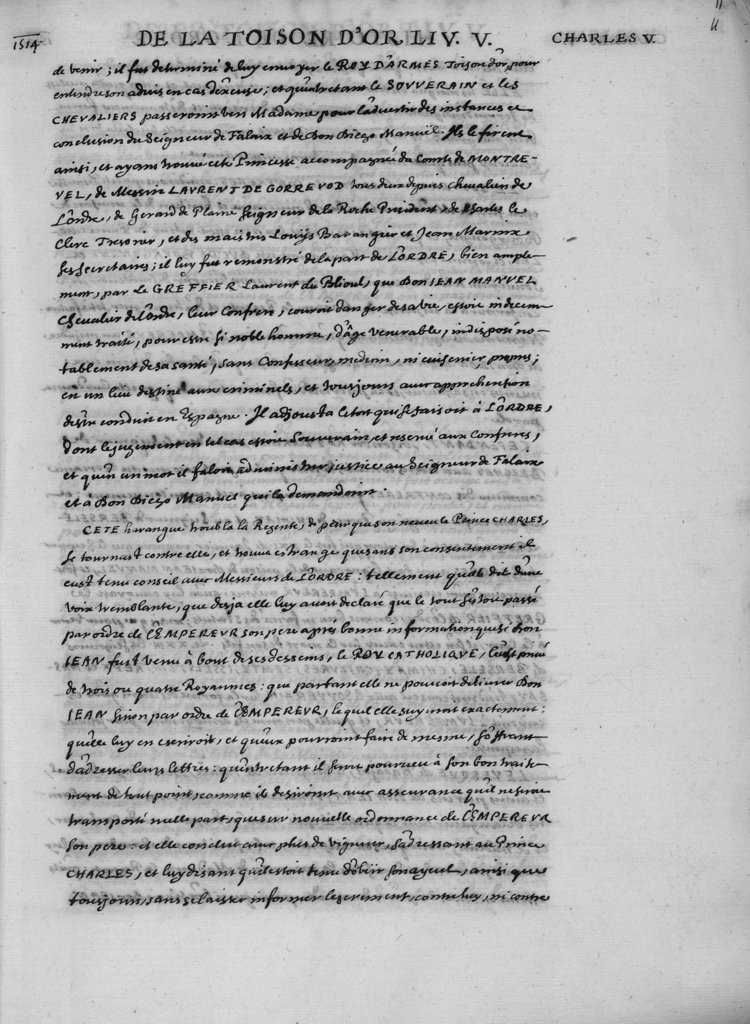 11
4
1514.
DE LA TOISON D'OR LIV. V.
CHARLES V.
de venir; il fut determiné de luy envoyer le ROY D'ARMES Toison d'or, pour
entendre son advis en cas d'excuse; et qu'entretant le SOUVERAIN et les
CHEVALIERS passeroint vers Madame pour l'advertir des instances et
conclusion du Seigneur de Falaix et de Don Diego Manuël. Ils le firent
ainsi, et ayans trouvé cete Princesse accompagnée du Comte de MONTRE-
VEL, de Messire LAURENT DE GORREVOD tous deux depuis chevaliers de
L'Ordre, de Gerard de Plaine Seigneur de la Roche President, de Charles le
Clerc Tresorier, et des maistres Louys Barangier et Jean Marnix
ses secretaires; il luy fut remonstré de la part de L'ORDRE, bien ample-
ment, par le GREFFIER Laurent du Blioul, que Don JEAN MANUEL
Chevalier de L'Ordre, leur Confrere, couroit danger de sa vie, estoit indecem-
ment traité, pour estre si noble homme, d'âge venerable, indisposé no-
tablement de sa santé, sans Confesseur, medecin, ni cuisinier propres;
en un lieu destiné aux criminels, et tousjours avec apprehension
d'estre conduit en Espagne. Il adjousta le tort qui se faisoit à L'ORDRE,
dont le jugement en tel cas estoit Souverain, et reservé aux Confreres,
et qu'en un mot il faloit administrer justice au Seigneur de Falaix
et à Don Diego Manuel qui la demandoint.
CETE harangue troubla la Regente, de peur que son neveu le Prince CHARLES,
se tournast contre elle, et trouva estrange que sans son consentement il
eust tenu conseil avec Messieurs de L'ORDRE: tellement qu'elle dit d'une
voix tremblante, que desja elle luy avoit declaré que le tout s'estoit passé
par ordre de L'EMPEREUR son pere aprés bonne information que si Don
JEAN fust venu à bout de ses desseins, le ROY CATHOLIQUE, l'eust privé
de trois ou quatre Royaumes: que partant elle ne pouvoit delivrer Don
JEAN sinon par ordre de L'EMPEREUR, lequel elle suyvroit exactement:
qu'elle luy en escriroit, et qu'eux pourroint faire de mesme, s'offrant
d'adresser leurs lettres: qu'entretant il seroit pourveu à son bon traite-
ment de tout point, comme ils desiroint avec asseurance qu'il ne seroit
transporté nulle part, que sur nouvelle ordonnance de L'EMPEREUR
son pere: et elle conclut avec plus de vigueur, s'adressant au Prince
CHARLES, et luy disant qu'il estoit tenu d'obeïr son ayeul, ainsi que
tousjours, sans se laisser informer legerement, contre luy, ni contre